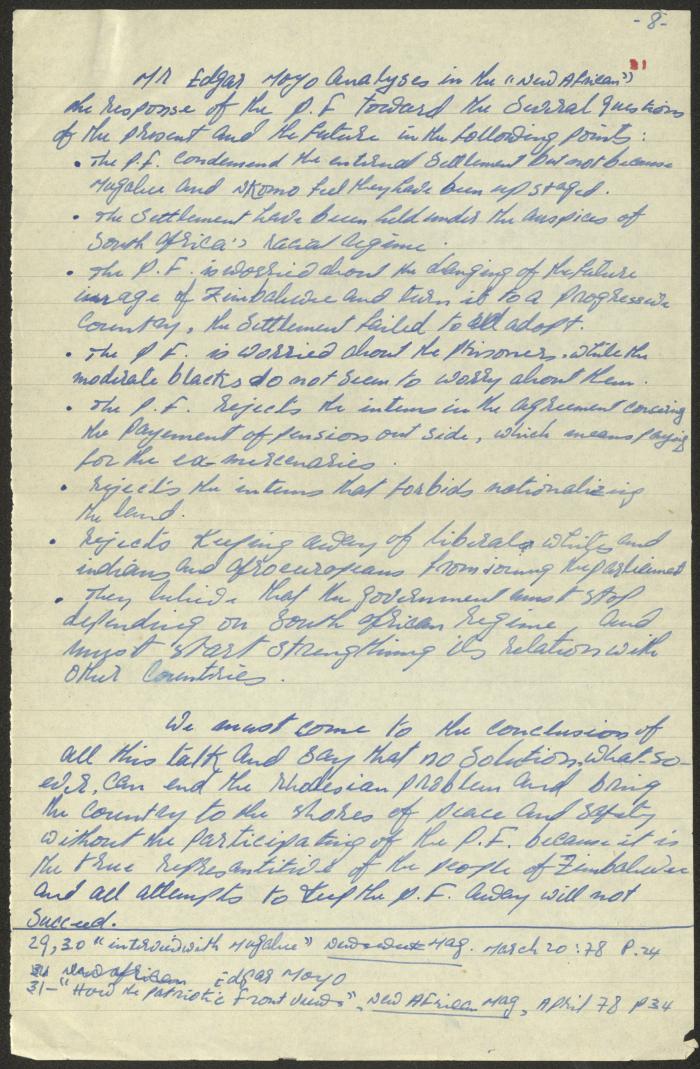 - 8 -
Mr Edgar Moyo Analyses in the "New African" 31
the response of the P.F toward the Surral questions
of the present and the future in the following points:
• The P.F. condemend the internal Settlement but not because
Mugabee and Nkomo feel they have been up staged.
• The Settlement have been held under the auspices of
South Africa's racial regime.
• The P.F. is worried about the changing of the future
image of Zimbabwe and turn it to a progressive
country, the Settlement failed to adopt.
• The P.F. is worried about the prisoners. while the
moderate blacks do not seem to worry about them.
• The P.F. rejects the intems in the agreement concering
the Payement of pension out side, which means paying
for the ex-mercenaries.
• rejects the intems that forbids nationalizing
the land.
• rejects Keeping away of liberal whites and
indians and afroeuropeans from the parliement
• They belive that the government must stop
depending on South African regime, and
must start strengthning its relation with
other Countries.
We must come to the conclusion of
all this talk and say that no solution, what-so-
ever, can end the Rhodesian problem and bring
the country to the shores of peace and safety
without the participating of the P.F. because it is
the true represantitive of the people of Zimbabwe
and all attempts to Keep the P.F. away will not
Succeed.
29,30 "interview with Mugabee" Mag. March 20:78 P.24
31 New african Edgar Moyo
31- "How the Patriotic Front views", New African Mag, April 78 P 34